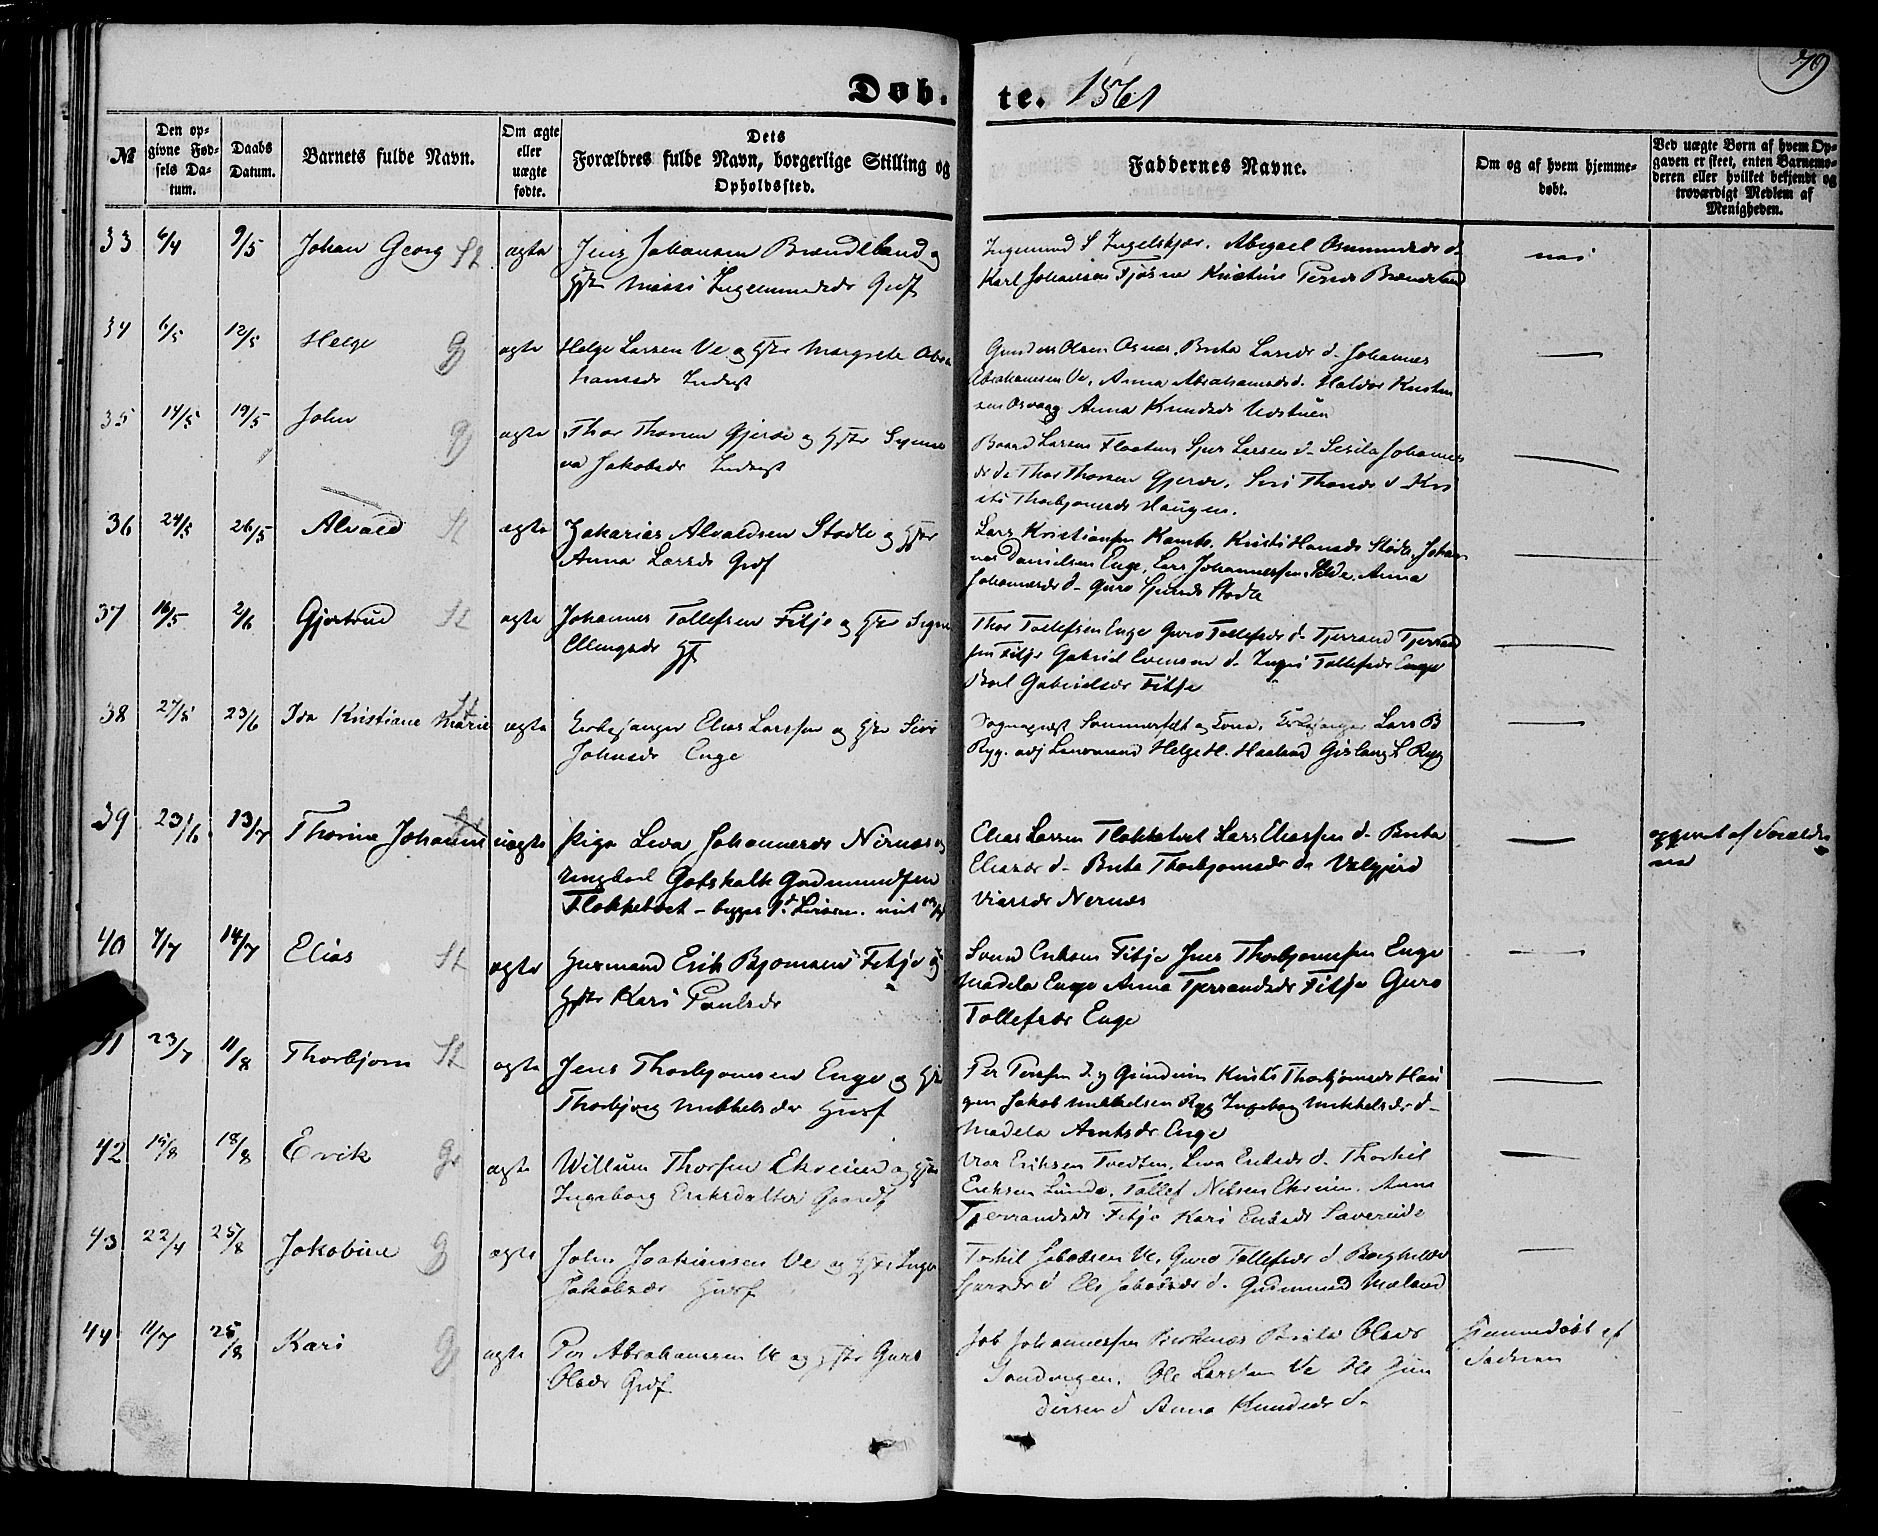 79
Døb- te. 1861
№
Den op-
givne Fød-
sels Da-
tum.
Daabs
Datum.
Barnets fulde Navn.
Om ægte
eller
uægte
fødte.
Dets
Forældres fulde Navn, borgerlige Stilling og
Opholdssted.
Faddernes Navne.
Om og af hvem hjemme-
døbt.
Ved uægte Børn af hvem Op-
gaven er skeet, enten Barnemo-
deren eller hvilket bekjendt og
troværdigt Medlem af
Menigheden.
33 6/4 9/5 Johan Georg St ægte
Jens Johansen Brændeland og
Hstr Ingemundsdr Grdf
Ingemund S Ingelskjær. Abigael Osmundsdr d-
Karl Johansen Tjøsne Kristine Persdr Brændeland
nei
34 6/5 12/5 Helge G ægte
Helge Larsen Ve og Hstr Margrete Abra
hamsdr Inderst
Gunder Olsen Osnæs, Brita Larsdr d- Johannes
Abrahamsen Ve, Anna Abrahamsdr d. Haldor Kristen
sen Osvaag Anna Knudsdr Udstuen
35 14/5 19/5 John G ægte
Thor Thorsen Gjerde og Hstr Synne
va Jakobsdr Inderst
Baard Larsen Flaaten Sjur Larsen d- Sesila Johannes
dr d. Thor Thorsen Gjerde, Siri Thorsdr d Kri
sti Thorbjørnsdr Haugen.
36 24/5 26/5 Alvald St ægte
Zakarias Alvaldsen Stødle og Hstr
Anna Larsdr Grdf
Lars Kristiansen Kambe Kristi Hansdr Stødle, Johan
nes Danielsen Enge, Lars Johannessen Silde, Anna
Johannesdr d- Guro Sjursdr Stødle
37 16/5 2/6 Gjertrud St ægte
Johannes Tollefsen Fitje og Hstr Signe
Ellingsdr Hf
Thor Tollefsen Enge Guro Tollefsdr d- Tjerrand Tjerrand
sen Fitje Gabriel Evensen d. Ingri Tollefsdr Enge
Boel Gabrielsdr Fitje
38 27/5 23/6 Ida Kristiane Marie St ægte
Kirkesanger Elias Larssen og Hstr Siri
Johnsdr Enge
Sogneprest Sommerfelt og Kone, Kirkesanger Lars B
Ryg. adj Lensmand Helge H. Haaland Gislaug L Ryg
39 23/6 13/7 Thorine Johanne uægte
Pige Liva Johannesdr Nernæs og
Ungkarl Gotskalk Gudmundsen
Flokketvet – begges 1ste Leiersm.
Elias Larsen Flokketvet Lars Eliassen d- Brita
Eliasdr d- Brita Thorbjørnsdr d. Valgjerd
Viarsdr Nernæs
opgivet af Forældre
ne
40 7/7 14/7 Elias St ægte
Husmand Erik Bjørnsen Fitje og
Hstr Kari Poulsdr
Svend Eriksen Fitje Jens Thorbjørnsen Enge
Madela Enge Anna Tjerrandsdr Fitje Guro
Tollefsdr Enge
41 23/7 11/8 Thorbjørn St ægte
Jens Thorbjørnsen Enge og Hstr
Thorbjørg Mikkelsdr Husf
Per Persen d. Kristi Thorbjørnsdr Hau
gen Jakob Mikkelsen Ryg Ingeborg Mikkelsdr d-
Madela Arntsdr Enge
42 15/8 18/8 Erik G ægte
Willum Thorsen Ekreim og Hstr
Ingeborg Eriksdatter Gaardf
Viar Eriksen Tvedten, Liva Eriksdr d. Thorkil
Eriksen Lunde, Tollef Nilsen Ekreim, Anna
Tjerrandsdr Fitje Kari Eriksdr Sævereide
43 22/7 25/8 Jakobine G ægte
John Joakimsen Ve og Hstr Inger
Jakobsdr Husf
Torkil Jakobsen Ve, Guro Tollefsdr d Borghilde
Sjursdr d Eli Jakobsdr d. Gudmund Mæland
44 11/7 25/8 Kari G ægte
Per Abrahamsen Ve og Hstr Guro
Olsdr Grdf.
Job Johannessen Brita Olsdr
Sandvigen, Ole Larssen Ve Ole Gun
dersen d Anna Knudsdr d-
Hjemmedøbt af
Faderen